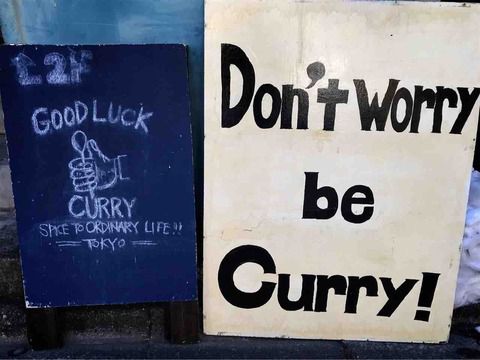 2F
GOOD LUCK
CURRY
SPICE TO ORDINARY LIFE!!
TOKYO
Don't worry
be
Curry!